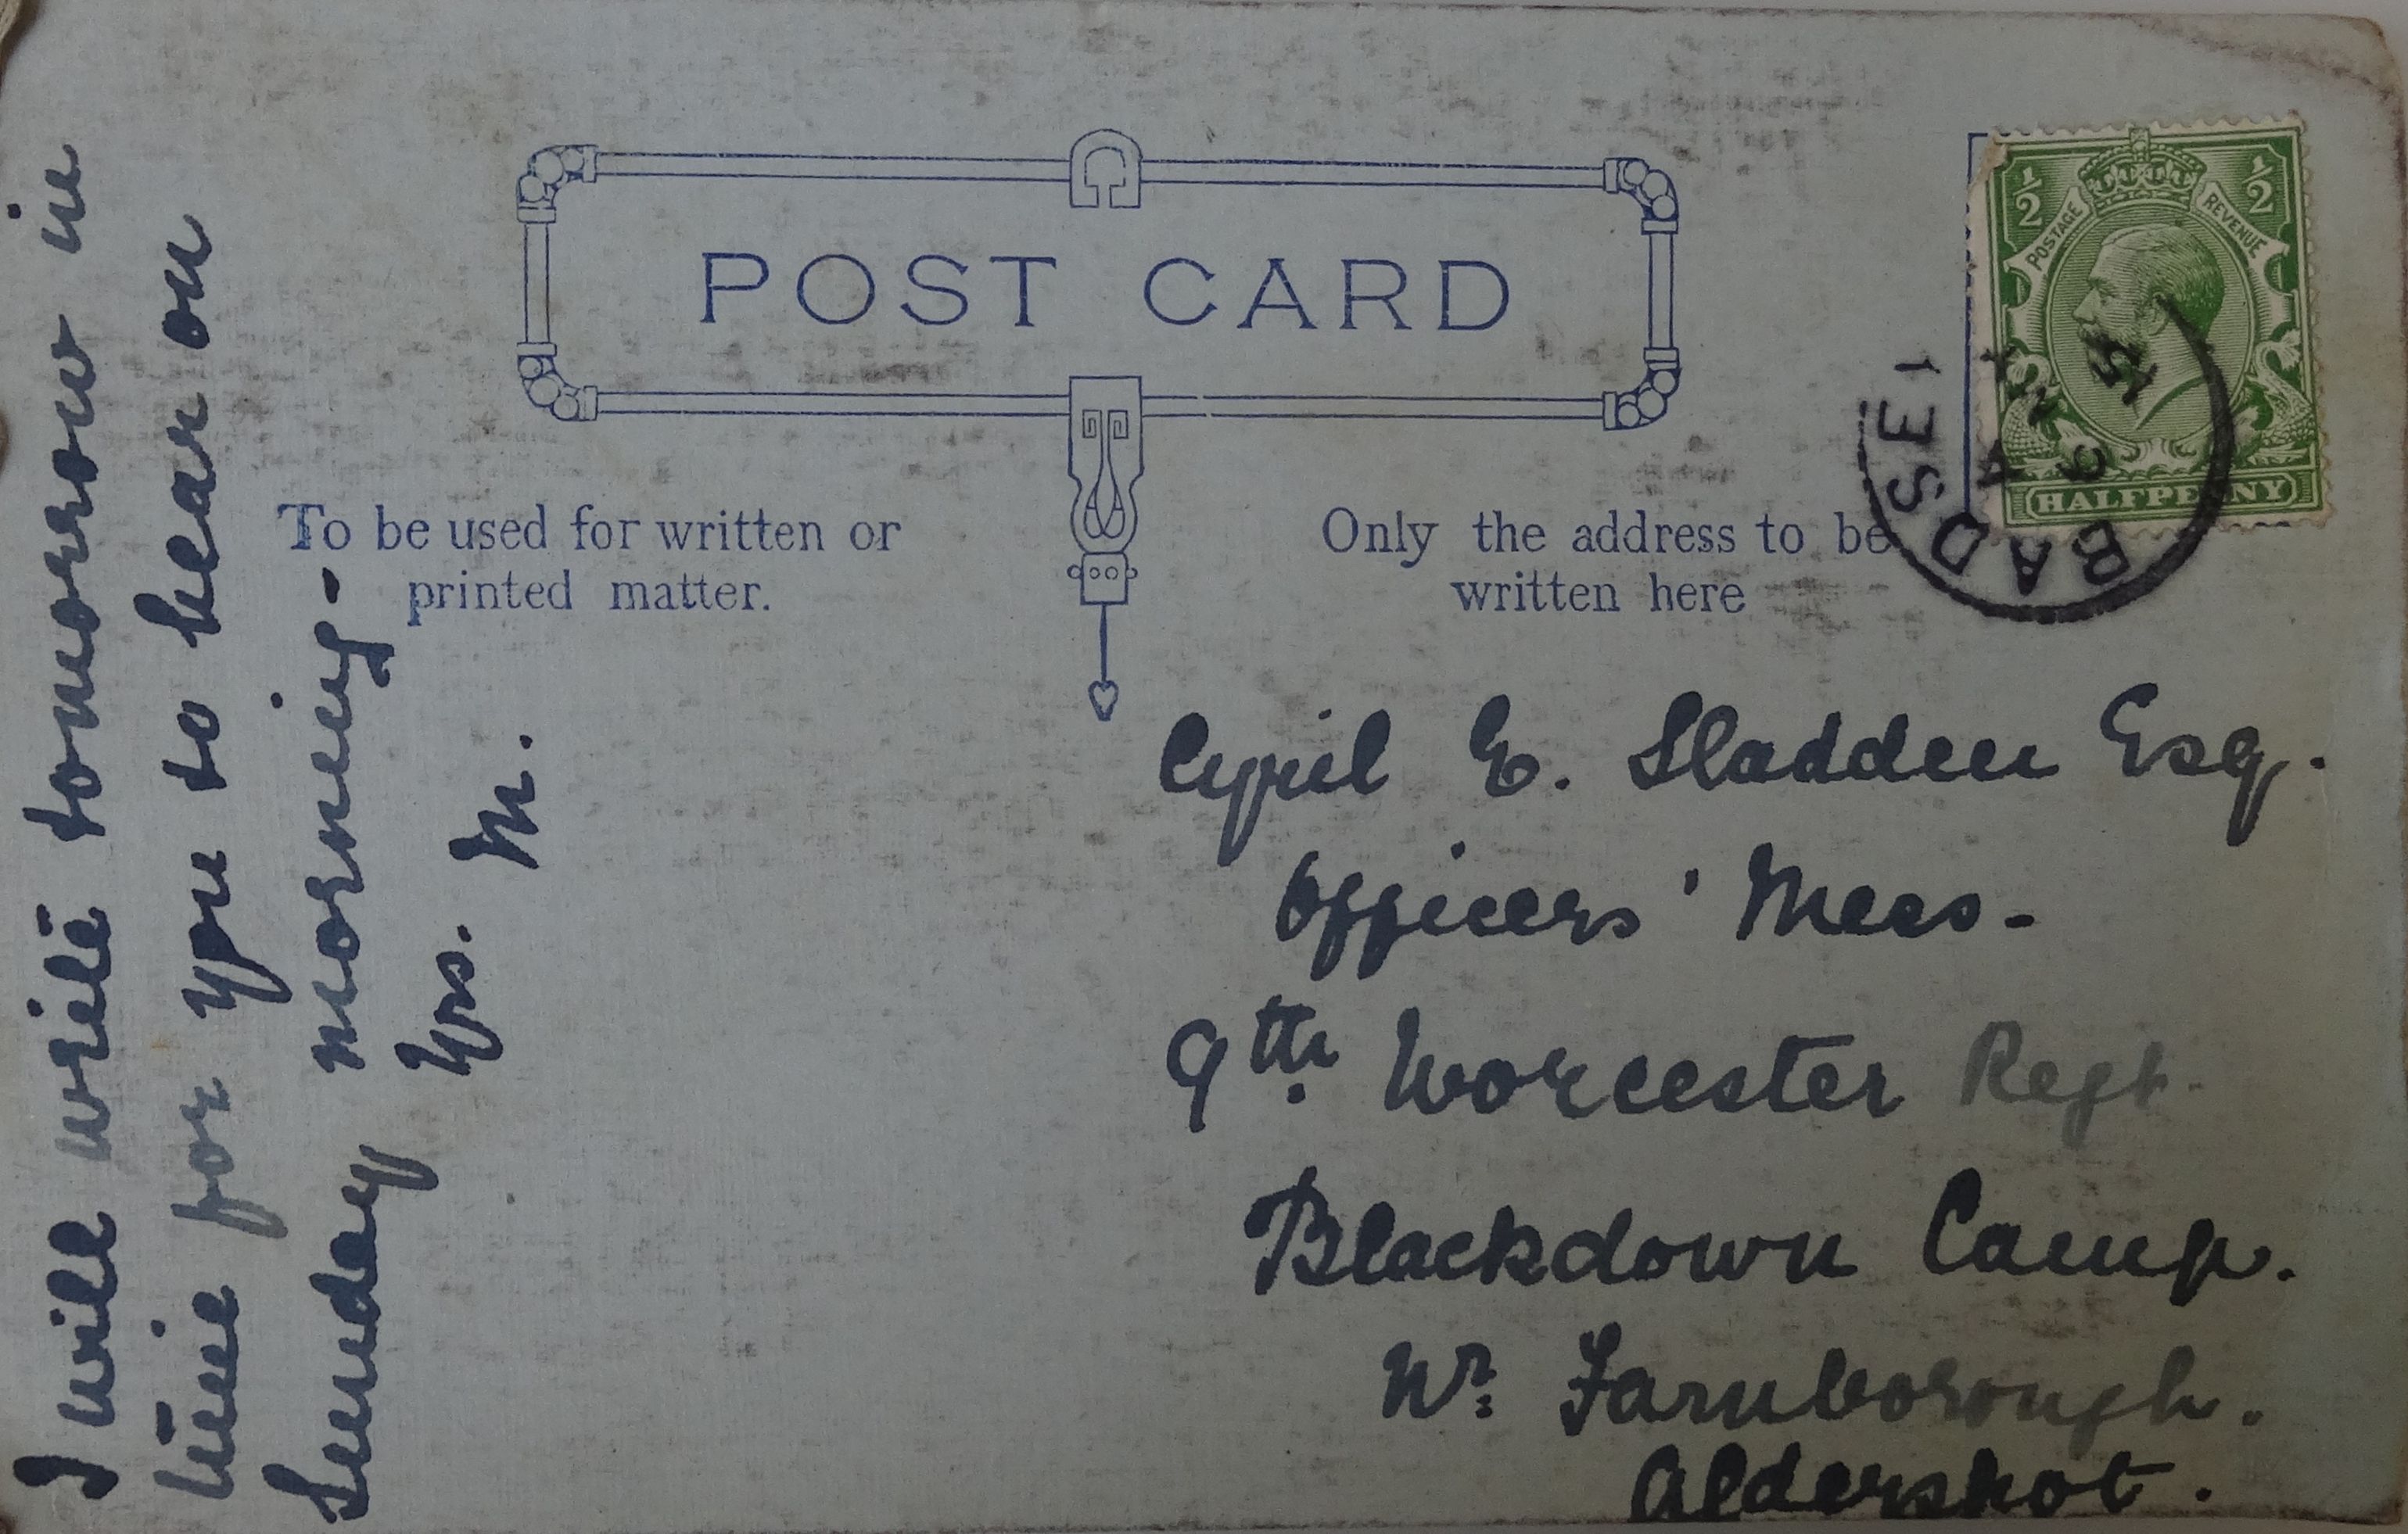 I will write tomorrow in
time for you to hear on
Sunday morning -
Yrs. M.
POST CARD
To be used for written or
printed matter.
Only the address to be
written here
½ ½
POSTAGE REVENUE
HALFPENNY
BADSE
15
Cyril E. Sladden Esq.
Officers' Mess-
9th. Worcester Regt.
Blackdown Camp.
Nr. Farnborough.
Aldershot.